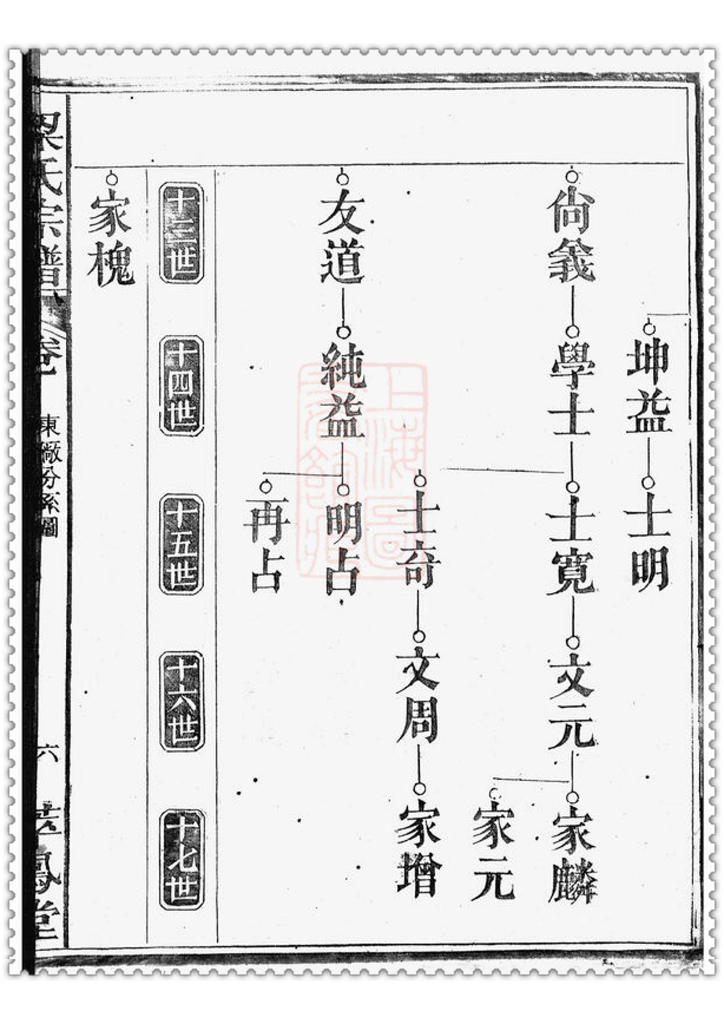 坤益
士明
尙義
學士
士寬
文元
家麟
家元
士奇
文周
家增
友道
純益
明占
再占
十三世
十四世
十五世
十六世
十七世
家槐
梁氏宗譜
卷
東廠分系圖
六
鳳堂